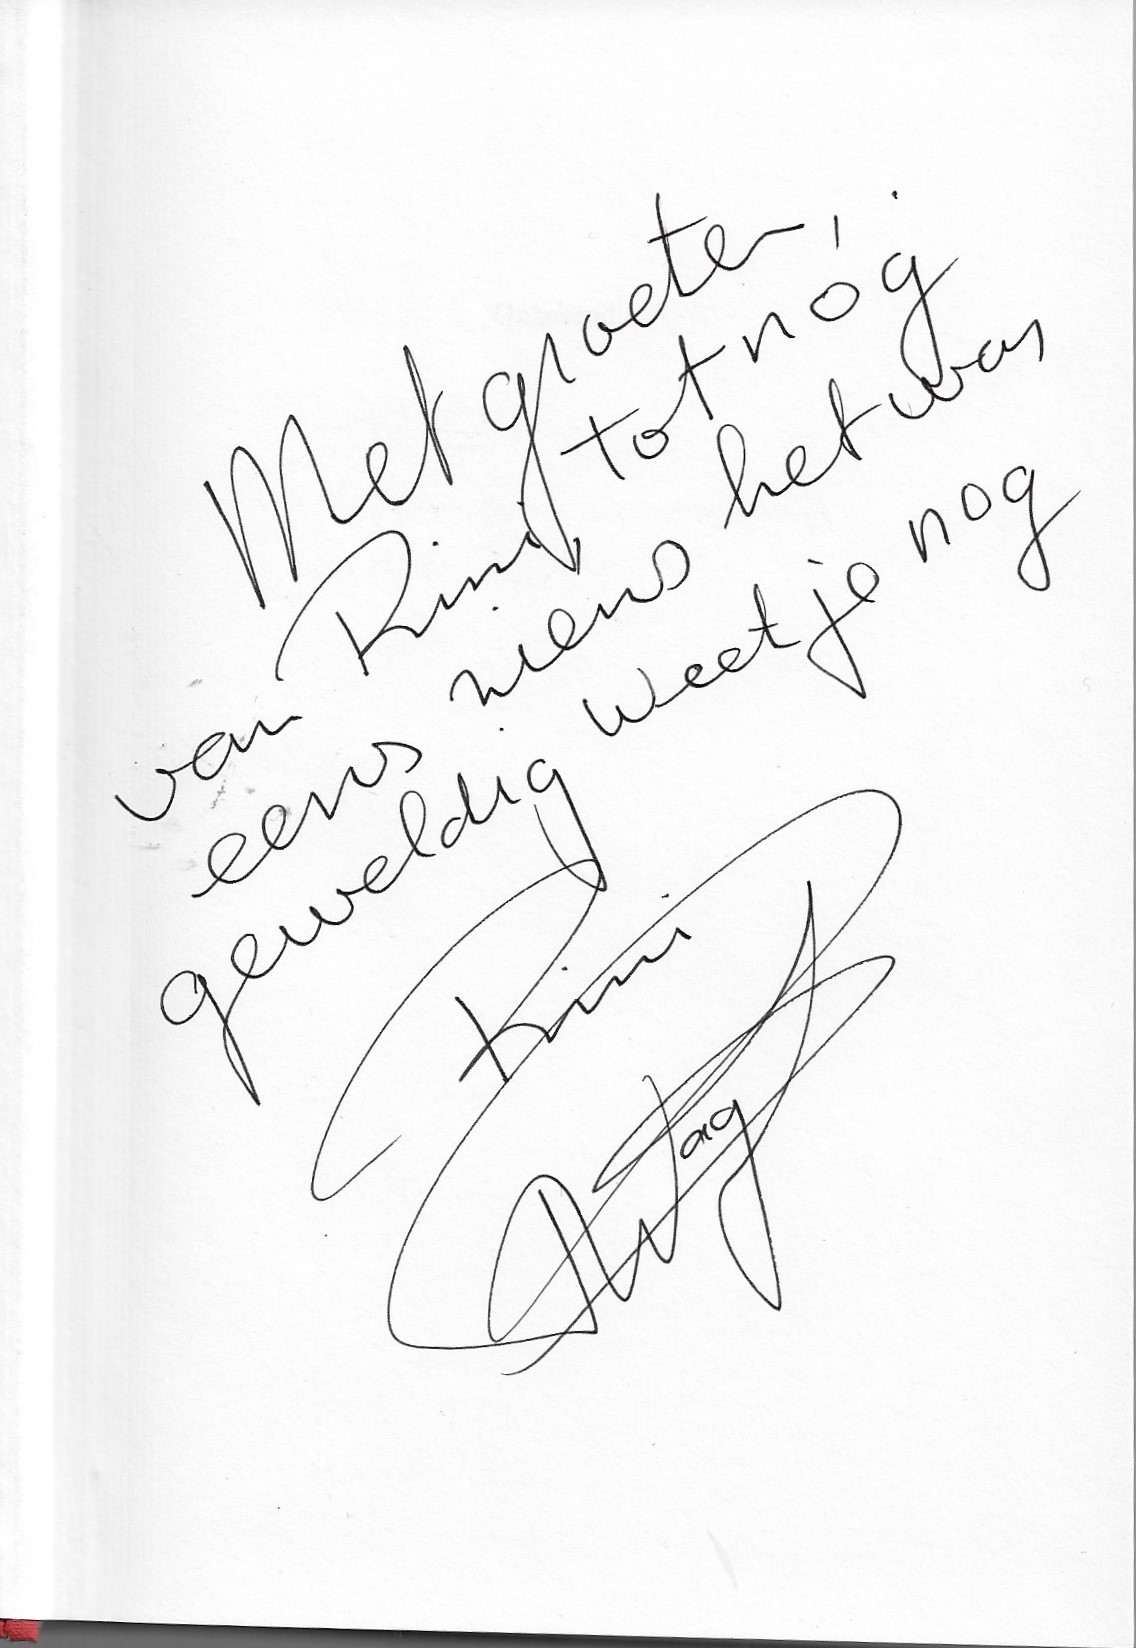 Met groeten,
van Rini, tot nóg
eens niens het was
geweldig weet je nog
Rini